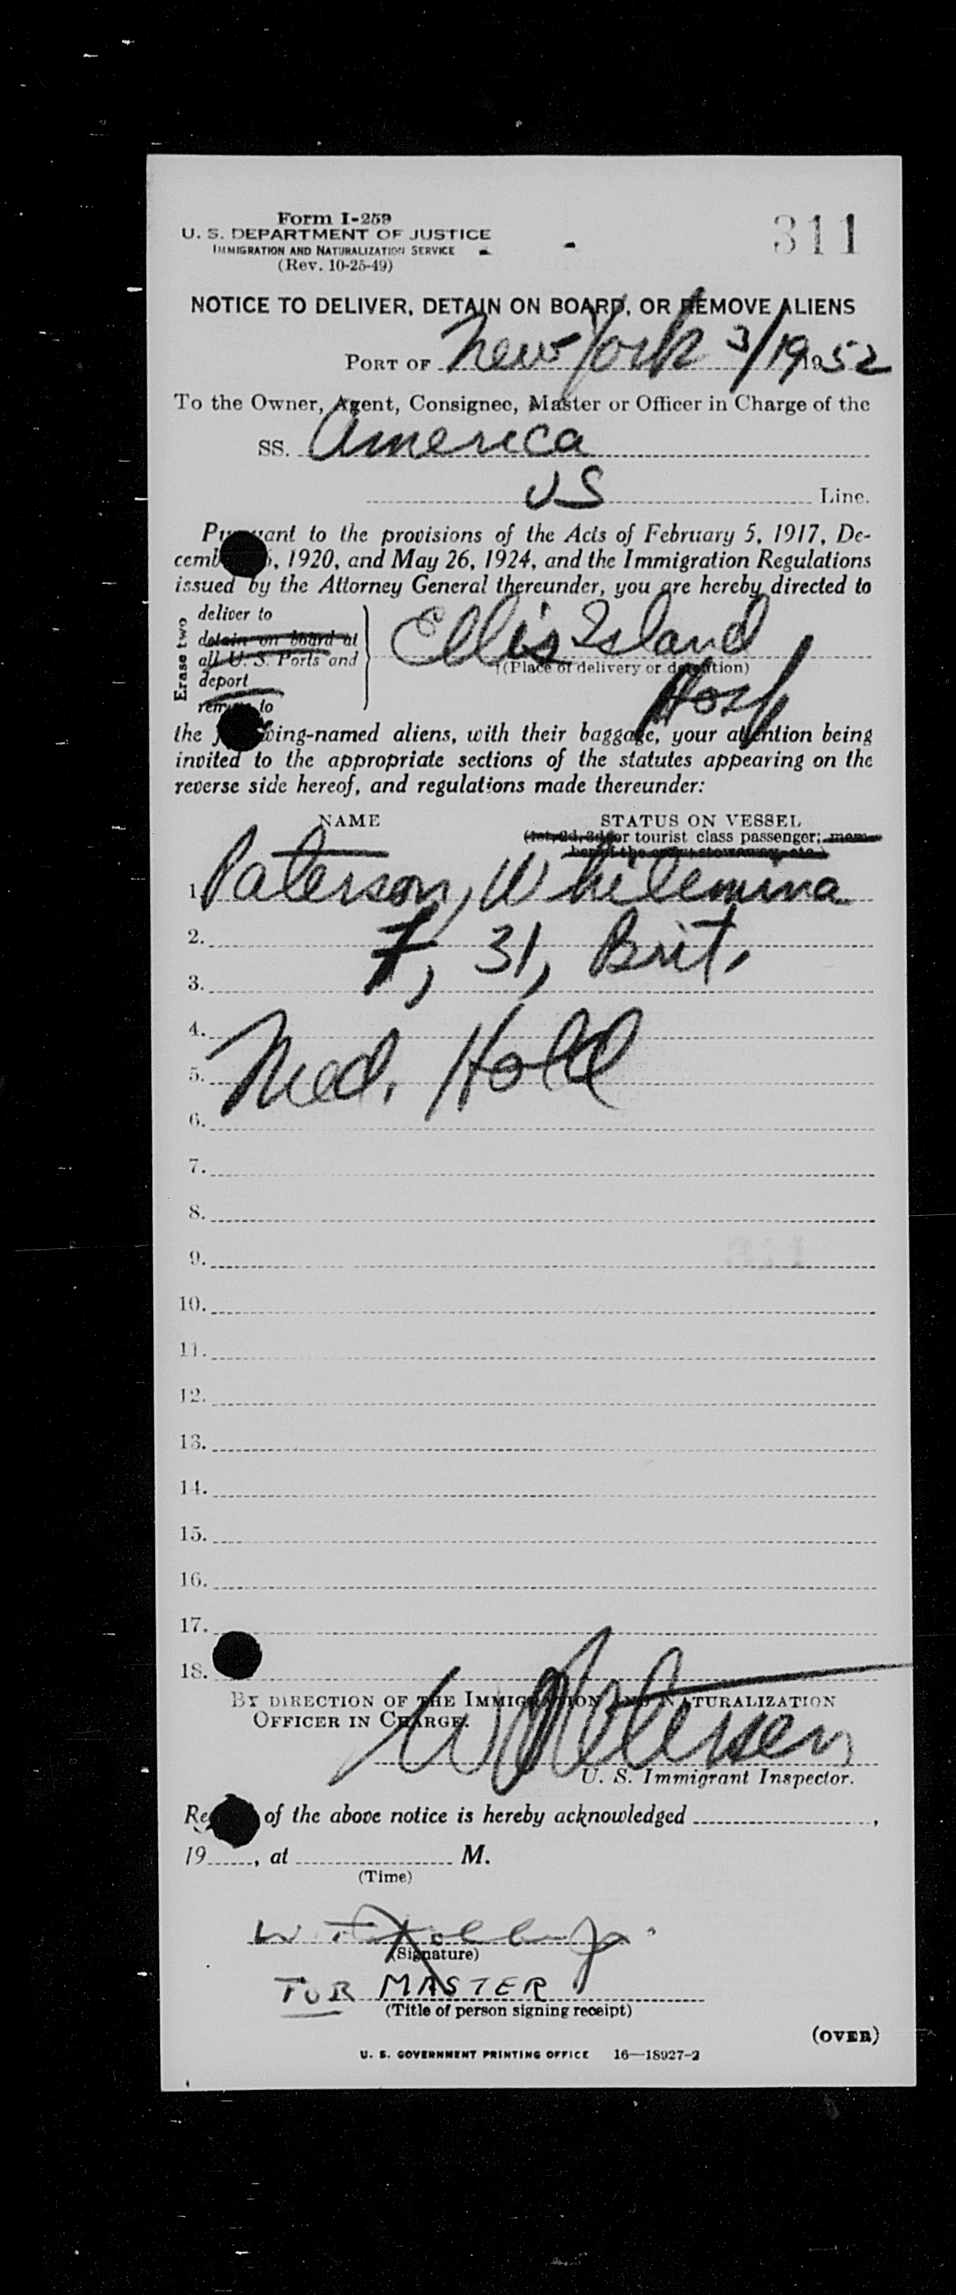 Form I-259
U. S. DEPARTMENT OF JUSTICE
IMMIGRATION AND NATURALIZATION SERVICE
(Rev. 10-25-49)
311
NOTICE TO DELIVER, DETAIN ON BOARD, OR REMOVE ALIENS
PORT OF New York 3/19 1952
To the Owner, Agent, Consignee, Master or Officer in Charge of the
SS. America
US Line.
Pursuant to the provisions of the Acts of February 5, 1917, De-
cember 5, 1920, and May 26, 1924, and the Immigration Regulations
issued by the Attorney General thereunder, you are hereby directed to
Erase two
deliver to
detain on board at
all U. S. Ports and
deport
remove to
Ellis Island
(Place of delivery or detention)
Hosp
the following-named aliens, with their baggage, your attention being
invited to the appropriate sections of the statutes appearing on the
reverse side hereof, and regulations made thereunder:
NAME STATUS ON VESSEL
(1st, 2d, 3d, or tourist class passenger; mem-
ber of the crew; stowaway, etc.)
1. Paterson, Whilemina
2. F, 31, Brit.
3.
4. Med. Hold
5.
6.
7.
8.
9.
10.
11.
12.
13.
14.
15.
16.
17.
18.
BY DIRECTION OF THE IMMIGRATION AND NATURALIZATION
OFFICER IN CHARGE.
U. S. Immigrant Inspector.
Receipt of the above notice is hereby acknowledged ,
19 , at M.
(Time)
(Signature)
FOR MASTER
(Title of person signing receipt)
(OVER)
U. S. GOVERNMENT PRINTING OFFICE 16—18927-2